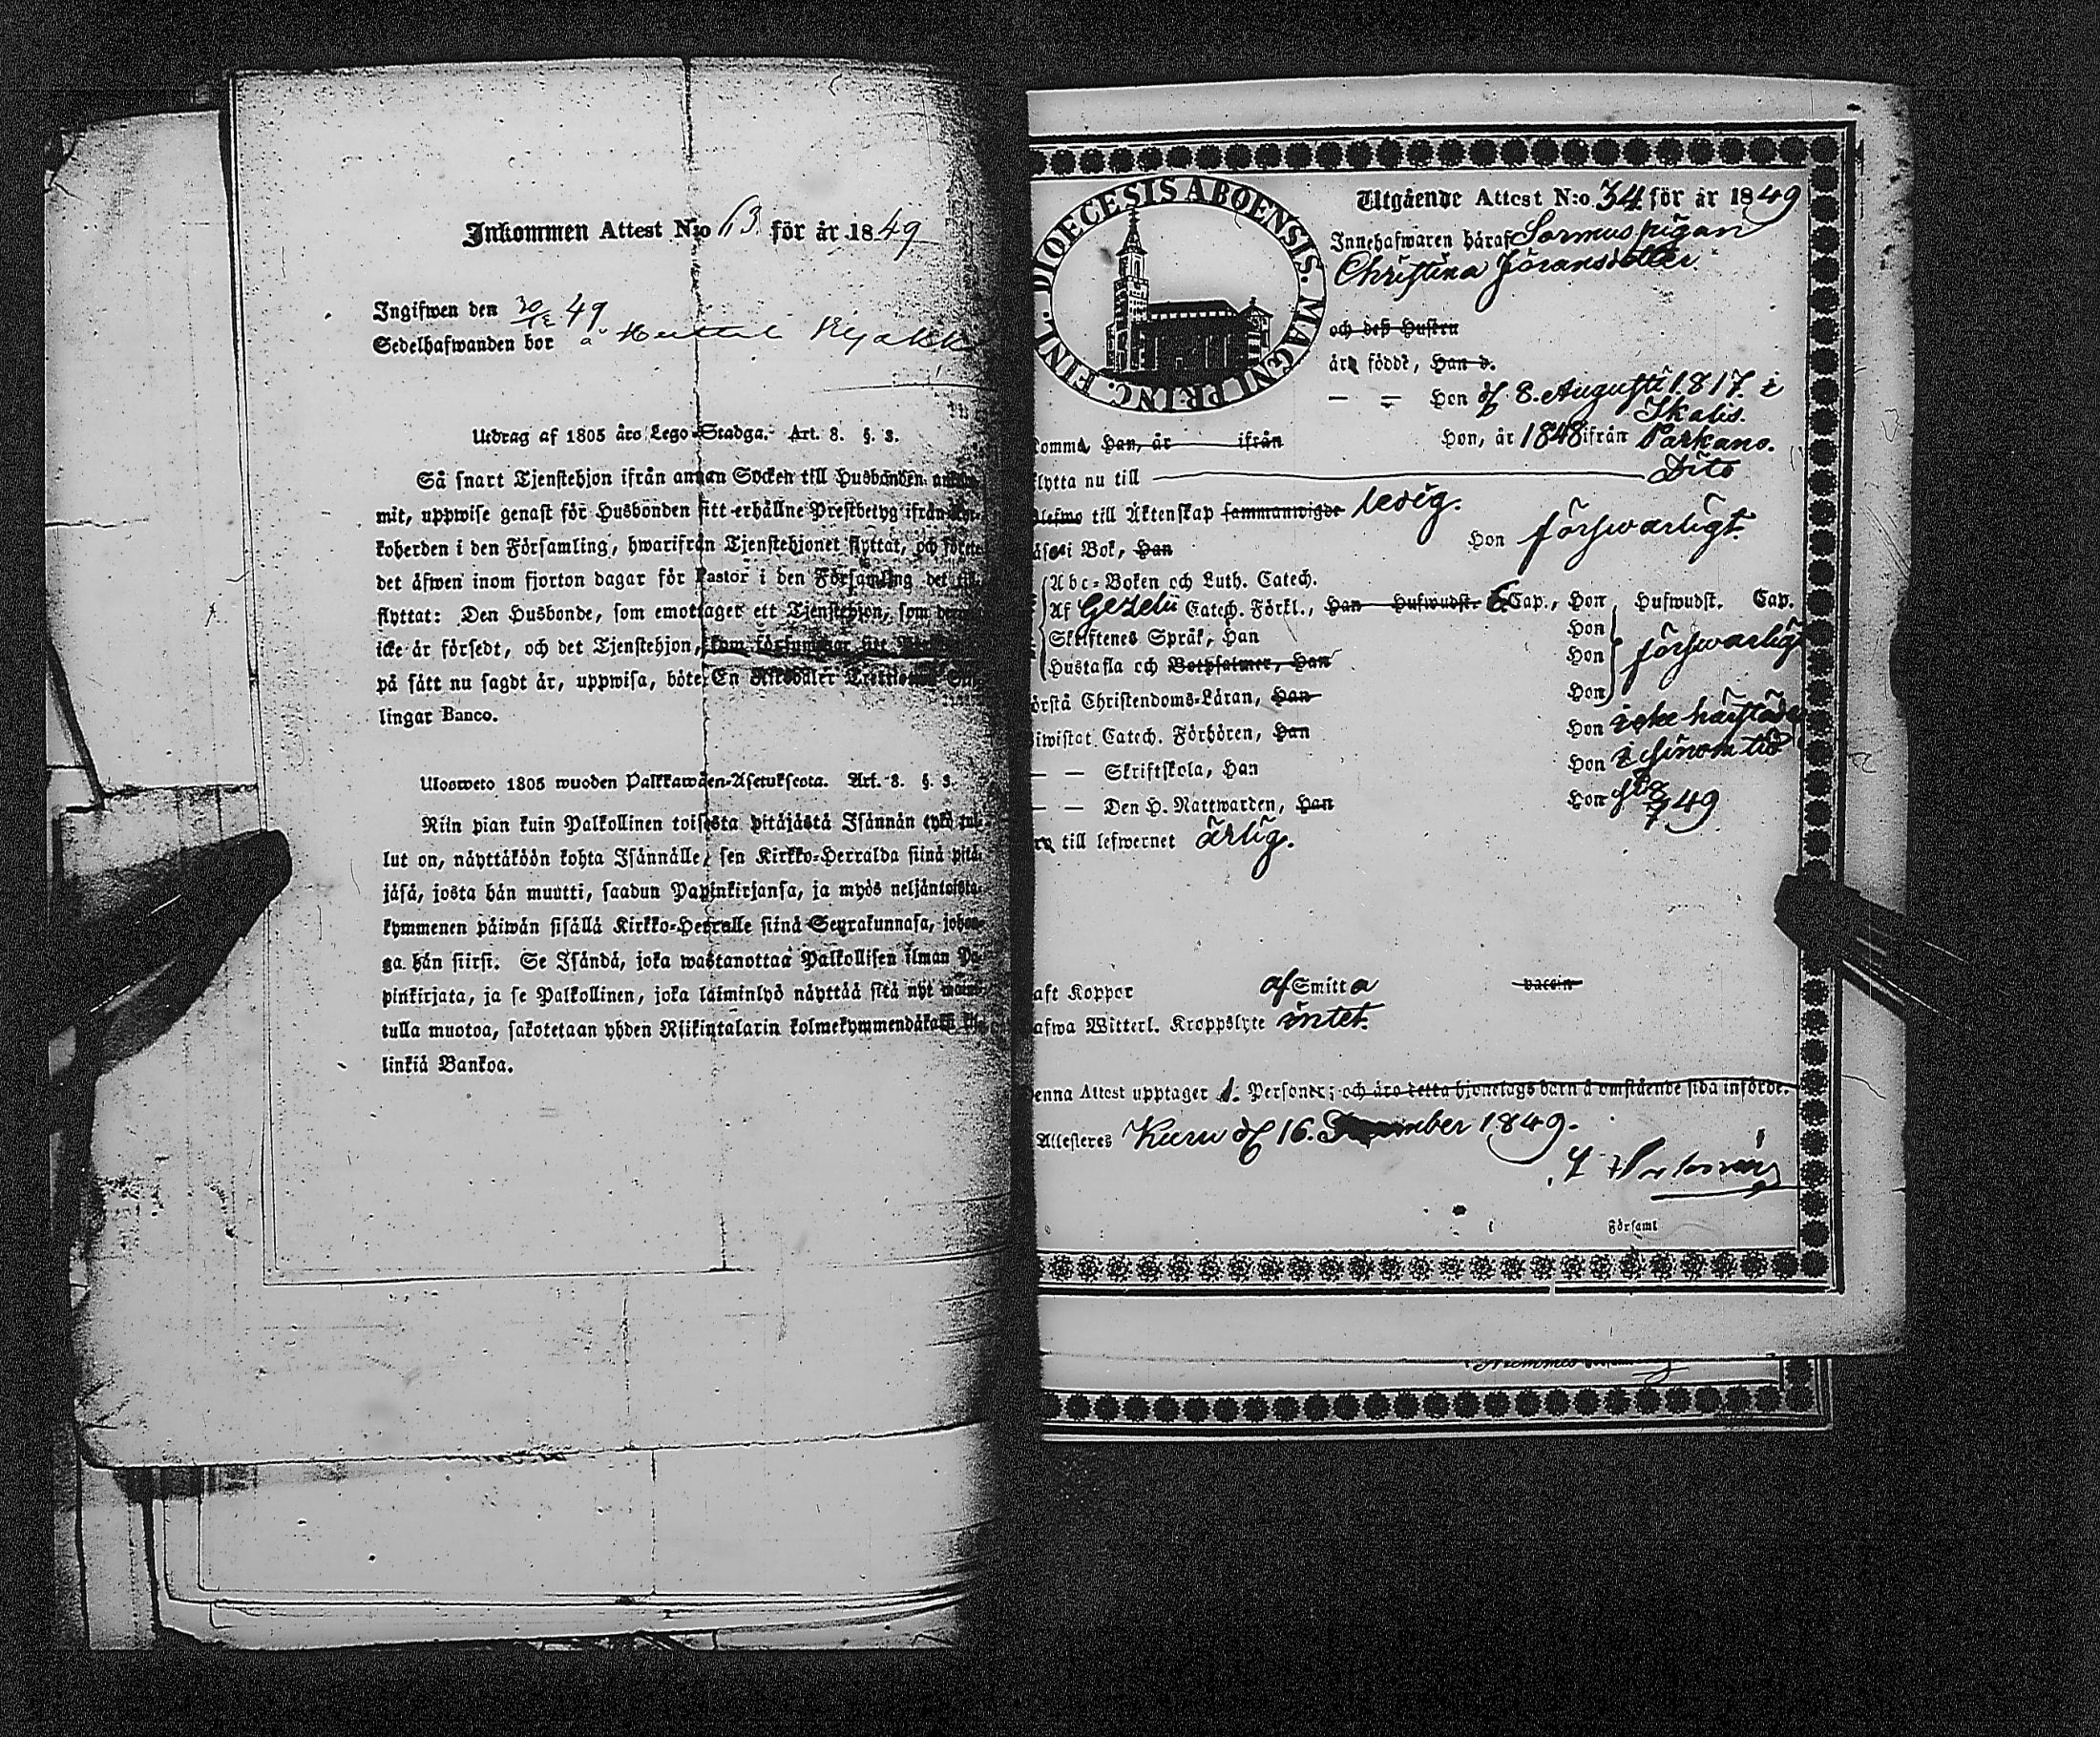 Inkommen Attest N:o 63. för år 1849
Ingifwen den 30/12 49
Sedelhafwanden bor å
Utdrag af 1805 års Lego-Stadga. Art. 8. §. 3.
Så snart Tjenstehjon ifrån annan Socken till Husbonden
mit, uppwise genast för Husbonden sitt erhållne Prestbetyg ifrån Kyr-
koherden i den Församling, hwarifrån Tjenstehjonet flyttat, och förete
det äfwen inom fjorton dagar för Pastor i den Församling det
flyttat: Den Husbonde, som emottager ett Tjenstehjon, som
icke är försedt, och det Tjenstehjon, som försummar sitt
på sätt nu sagdt är, uppwisa, böte En Riksdaler
lingar Banco.
Uloosweto 1805 wuoden Palkkawäen-Asetuksesta. Art. 8. §. 3.
Niin pian kuin Palkollinen toisesta pitäjästä Isännän tykö tul-
lut on, näyttäköön kohta Isännälle, sen Kirkko-Herralda siinä pitä-
jäsä, josta hän muutti, saadun Papinkirjansa, ja myös neljäntoista-
kymmenen päiwän sisällä Kirkko-Herralle siinä Seurakunnasa, johon-
ga hän siirsi. Se Isändä, joka wastanottaa Palkollisen ilman Pa-
pinkirjata, ja se Palkollinen, joka laiminlyö näyttää sitä nyt
tulla muotoa, sakotetaan yhden Riikintalarin kolmekymmendäkaksi kil-
linkiä Bankoa.
DIOECESIS ABOENSIS. MAGNI PRINC. FINL.
Utgående Attest N:o 34 för år 1849
Innehafwaren häraf Sormus pigan
Christina Jöransdotter.
och deß Hustru
äro födde, Han d.
— — Hon d 8. Augusti 1817. i
Ikalis.
omma Han, år ifrån Hon, år 1848 ifrån Parkano.
lytta nu till Dito
lefwo till Äktenskap sammanwigde ledig.
äse i Bok, Han Hon förswarligt.
Abc-Boken och Luth. Catech.
Af Gezelii Catech. Förkl., Han Hufwudst. 6 Cap., Hon Hufwudst. Cap.
Skriftenes Språk, Han Hon
Hustafla och Botpsalmer, Han Hon förswarligt
örstå Christendoms-Läran, Han Hon
iwistat Catech. Förhören, Han Hon icke härstädes
— — Skriftskola, Han Hon i sinom tid
— — Den H. Nattwarden, Han Hon d 8/7 49
ro till lefwernet ärlig.
aft Koppor af Smitta vaccin
afwa Witterl. Kroppslyte intet.
enna Attest upptager 1. Personer; och äro detta hjonelags barn å omstående sida införde.
Attesteres Kuru d 16. December 1849.
Församl